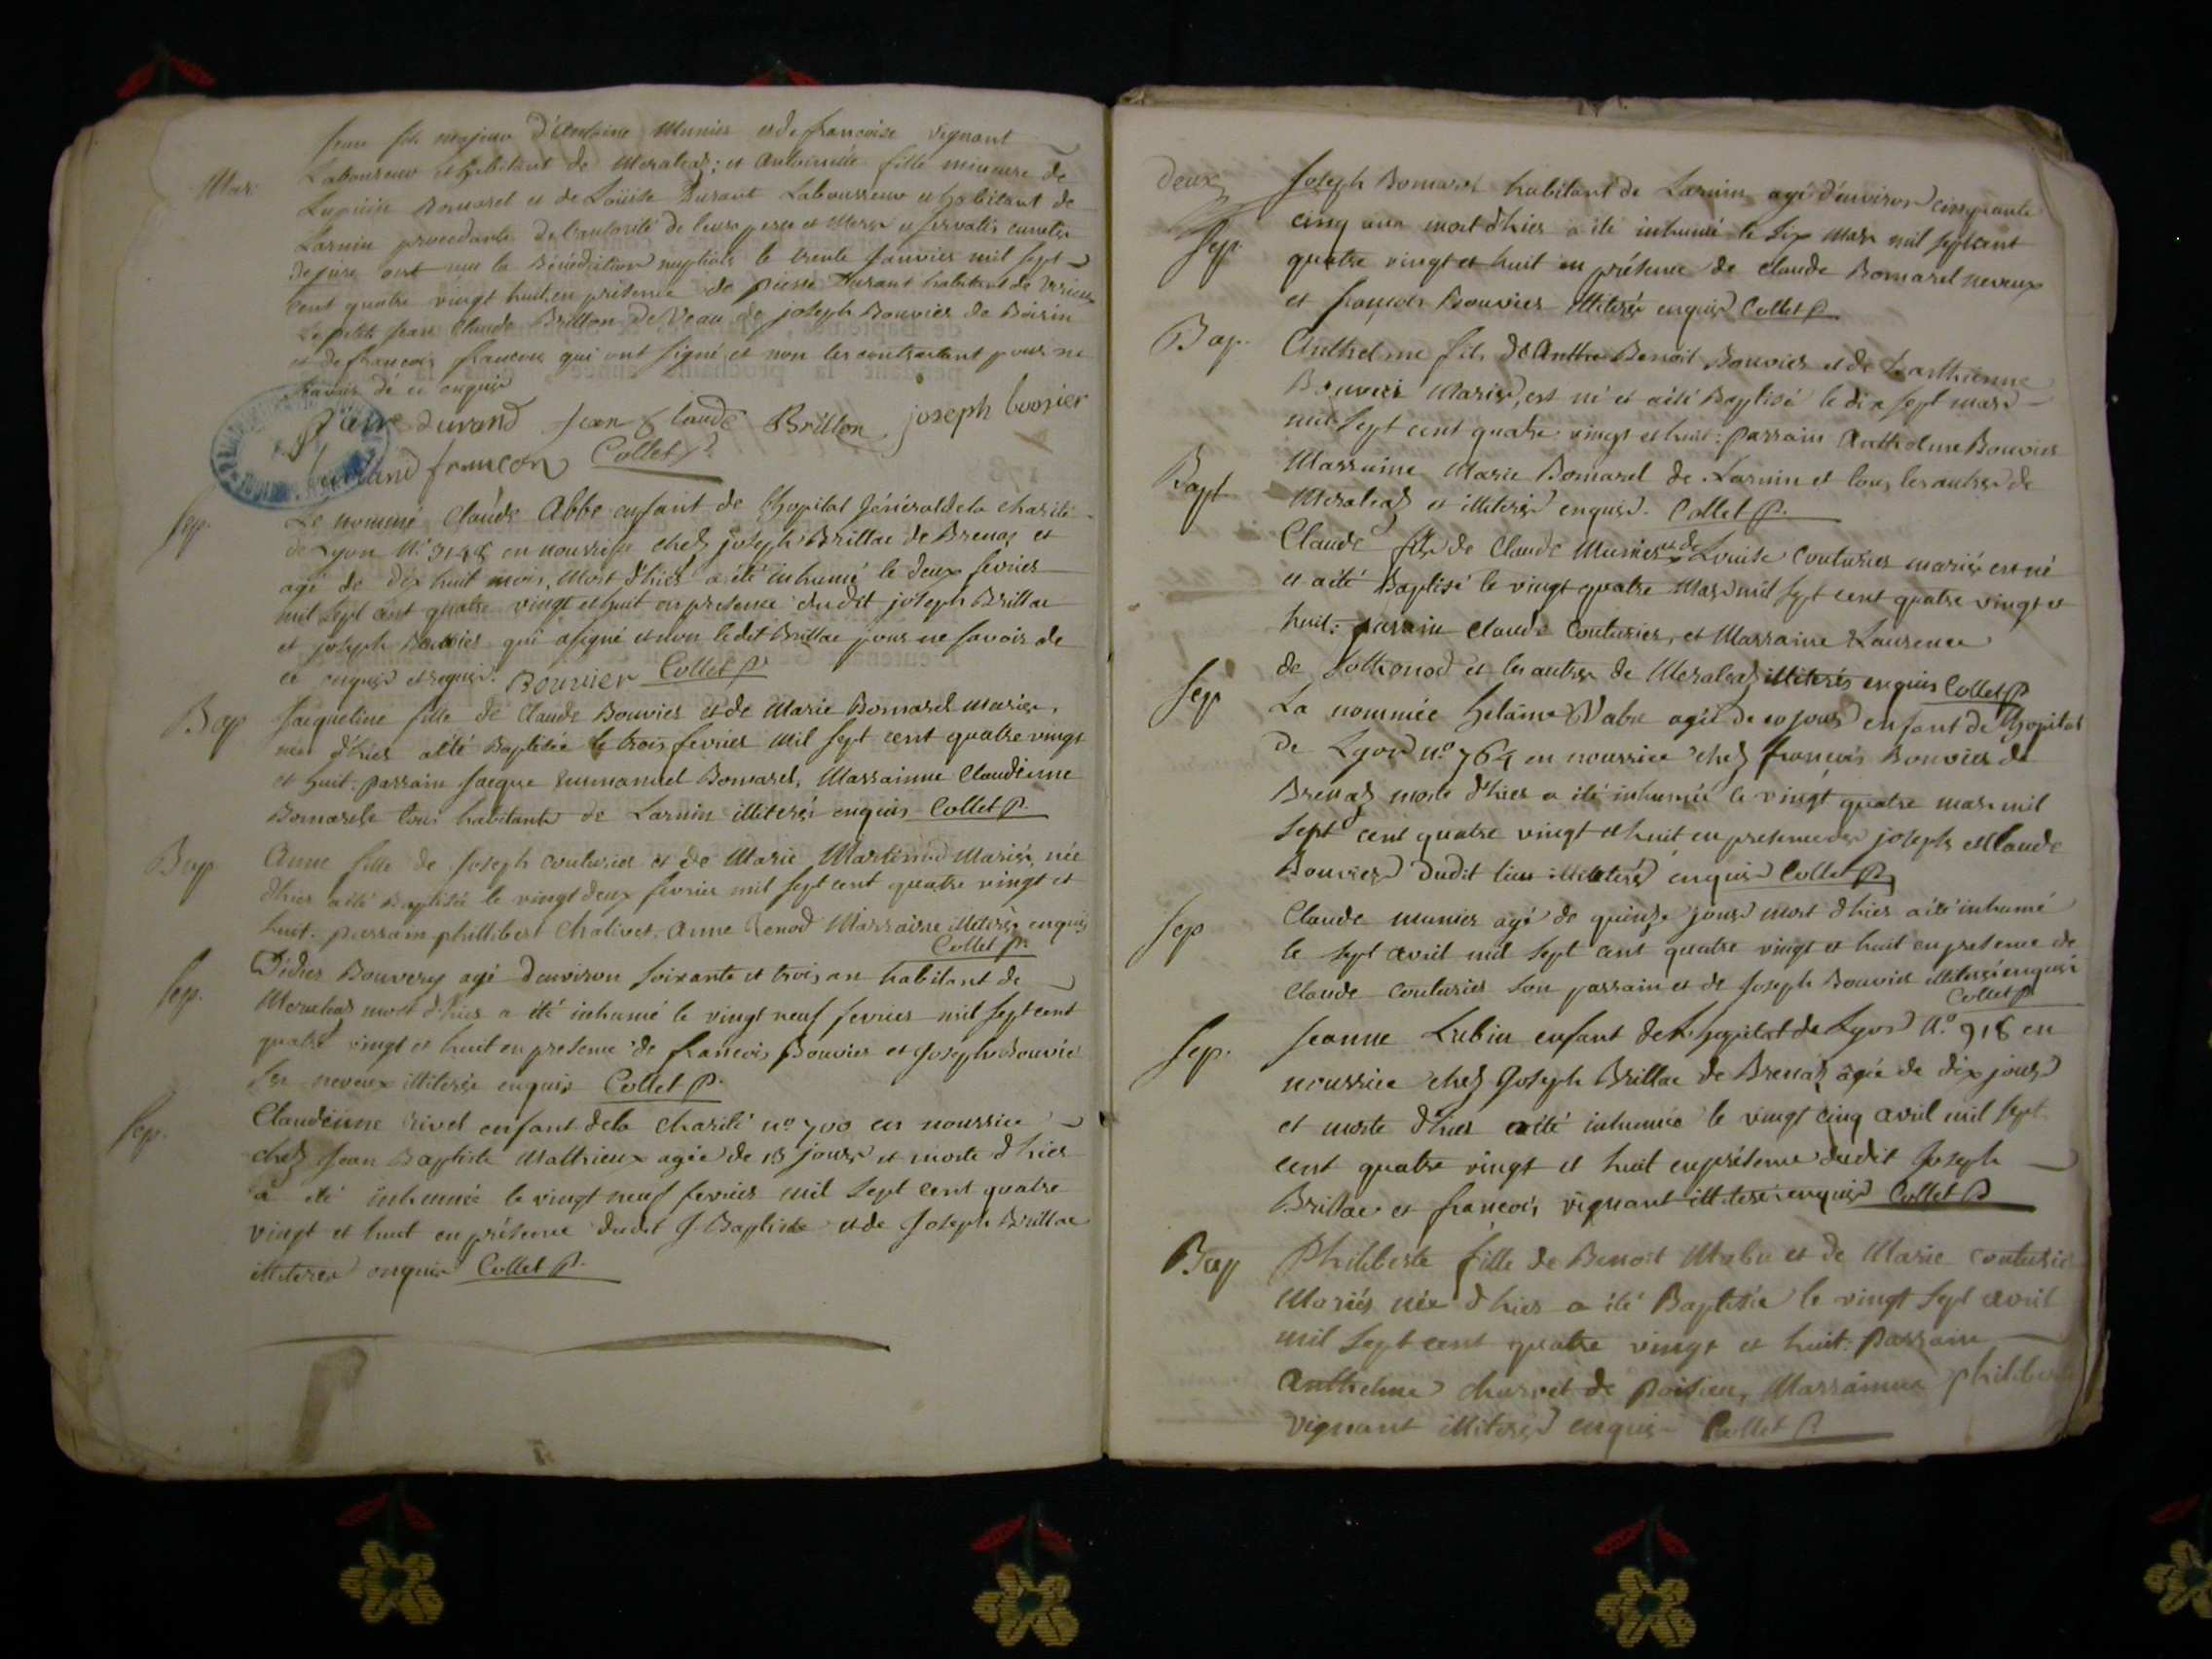 Jean fils majeur d'Antoine Munier et de francoise vignant
Mar. Laboureur et habitant de Meraleaz; et Antoinette fille mineure de
Bomarel et de Louise Durant Laboureur et habitant de
Larnin procedants de l'autorité de leurs pere et Mere et
de jure ont reçu la Bénédiction nuptiale le trente janvier mil sept
cent quatre vingt huit en présence de pierre Durant habitant de
Le petit jean Claude Brillon De Veau de joseph Bouvier de Boirin
et de francois francon qui ont signé et non les contractant pour ne
savoir de ce enquis
pierre durand jean Claude Brillon joseph bouvier
francon Collet P.
Sep. Le nommé Claude Abbe enfant de l'hopital général de la charité
de Lyon N° 3148 en nourrisse chez joseph Brillac de Brenaz et
agé de dix huit mois, Mort d'hier a été inhumé le deux fevrier
mil sept cent quatre vingt et huit en presence dudit joseph Brillac
et joseph Bouvier qui a signé et non ledit Brillac pour ne savoir de
ce enquis et requis. Bouvier Collet P.
Bap Jacqueline fille de Claude Bouvier et de Marie Bomarel mariés,
née d'hier a été Baptisée le trois fevrier mil sept cent quatre vingt
et huit. parrain Jacque Emmanuel Bomarel, Marrainne Claudienne
Bomarel tous habitants de Larnin illiterés enquis Collet P.
Bap. Anne fille de Joseph couturier et de Marie Martinod Mariés, née
d'hier a été Baptisée le vingt deux fevrier mil sept cent quatre vingt et
huit. parrain phillibert Chalivet. Anne Renod Marraine illiterés enquis
Collet P.
Sep. Didier Bouvery agé d'environ soixante et trois an habitant de
Meraleaz mort d'hier a été inhumé le vingt neuf fevrier mil sept cent
quatre vingt et huit en presence de francois Bouvier et Joseph Bouvier
ses neveux illiterés enquis Collet P.
Sep. Claudienne rivet enfant de la charité n° 700 en nourrice
chez Jean Baptiste Matthieux agée de 15 jours et morte d'hier
a été inhumée le vingt neuf fevrier mil sept cent quatre
vingt et huit en présence dudit J. Baptiste et de Joseph Brillac
illiterés enquis Collet P.
deux Joseph Bomarel habitant de Larnin agé d'environ cinquante
Sep. cinq ans mort d'hier a été inhumé le six Mars mil sept cent
quatre vingt et huit en présence de Claude Bomarel neveux
et françois Bouvier illiterés enquis Collet P.
Bap. Anthelme fils de Benoit Bouvier et de
Bouvier Mariés, est né et a été Baptisé le dix sept mars
mil sept cent quatre vingt et huit: parrain Anthelme Bouvier
Marraine Marie Bomarel de Larnin et tous les autres de
Bapt. Meraleaz et illiterés enquis. Collet P.
Claude fils de Claude Munier et de Louise Couturier mariés est né
et a été Baptisé le vingt quatre Mars mil sept cent quatre vingt et
huit: parain Claude Couturier, et Marraine Laurence
de Sothonod et les autres de Meraleaz illiterés enquis Collet P
Sep La nommée helaine Vabre agée de 10 jours enfant de l'hopital
de Lyon n° 764 en nourrice chez francois Bouvier de
Brenaz morte d'hier a été inhumée le vingt quatre mars mil
sept cent quatre vingt et huit en presence des joseph et Claude
Bouvier dudit lieu illiterés enquis Collet P.
Sep Claude munier agé de quinze jours mort d'hier a été inhumé
le sept avril mil sept cent quatre vingt et huit en presence de
Claude couturier son parrain et de Joseph Bouvier illiterés enquis
Collet P
Sep. Jeanne Lubin enfant de l'hopital de Lyon N° 918 en
nourrice chez Joseph Brillac de Brenaz agée de dix jours
et morte d'hier a été inhumée le vingt cinq avril mil sept
cent quatre vingt et huit en présence dudit Joseph
Brillac et francois vignant illiterés enquis Collet P
Bap Philiberte fille de Benoit Mabu et de Marie couturier
Mariés née d'hier a été Baptisée le vingt sept avril
mil sept cent quatre vingt et huit. Parrain
Anthelme charvet de poisieu, Marrainne philiberte
vignant illiterés enquis Collet P.